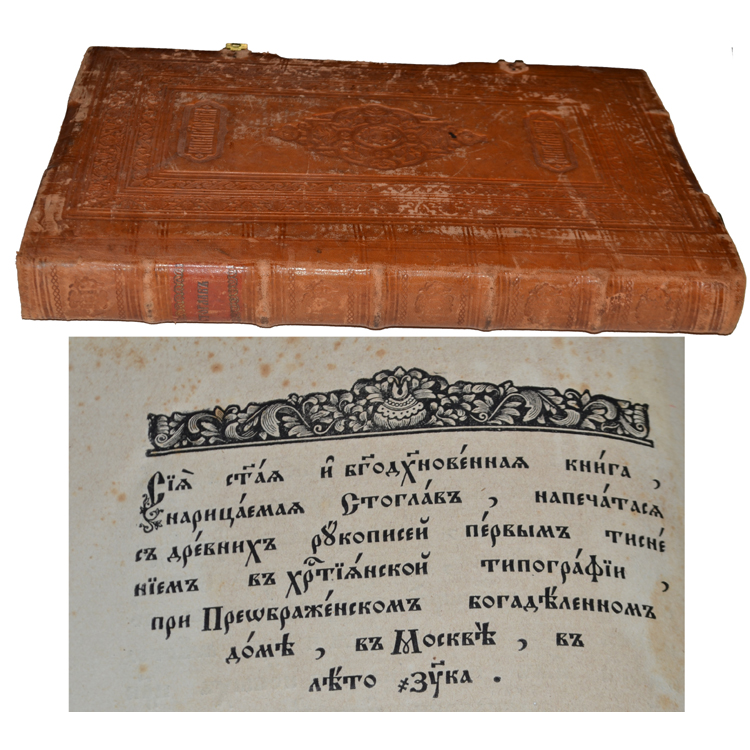 Сїѧ̀ ст҃а́ѧ и҆ бг҃одх҃нове́ннаѧ кни́га ,
нарица́емаѧ Стогла́въ , напеча́тасѧ
съ дре́внихъ рꙋ́кописей пе́рвымъ тисне́
нїемъ въ хрⷭ҇тїѧ́нской типогра́фїи ,
при Преѡбраже́нскомъ богадѣ́ленномъ
до́мѣ , въ Москвѣ̀ , въ
лѣ́то ҂зу҃ка .